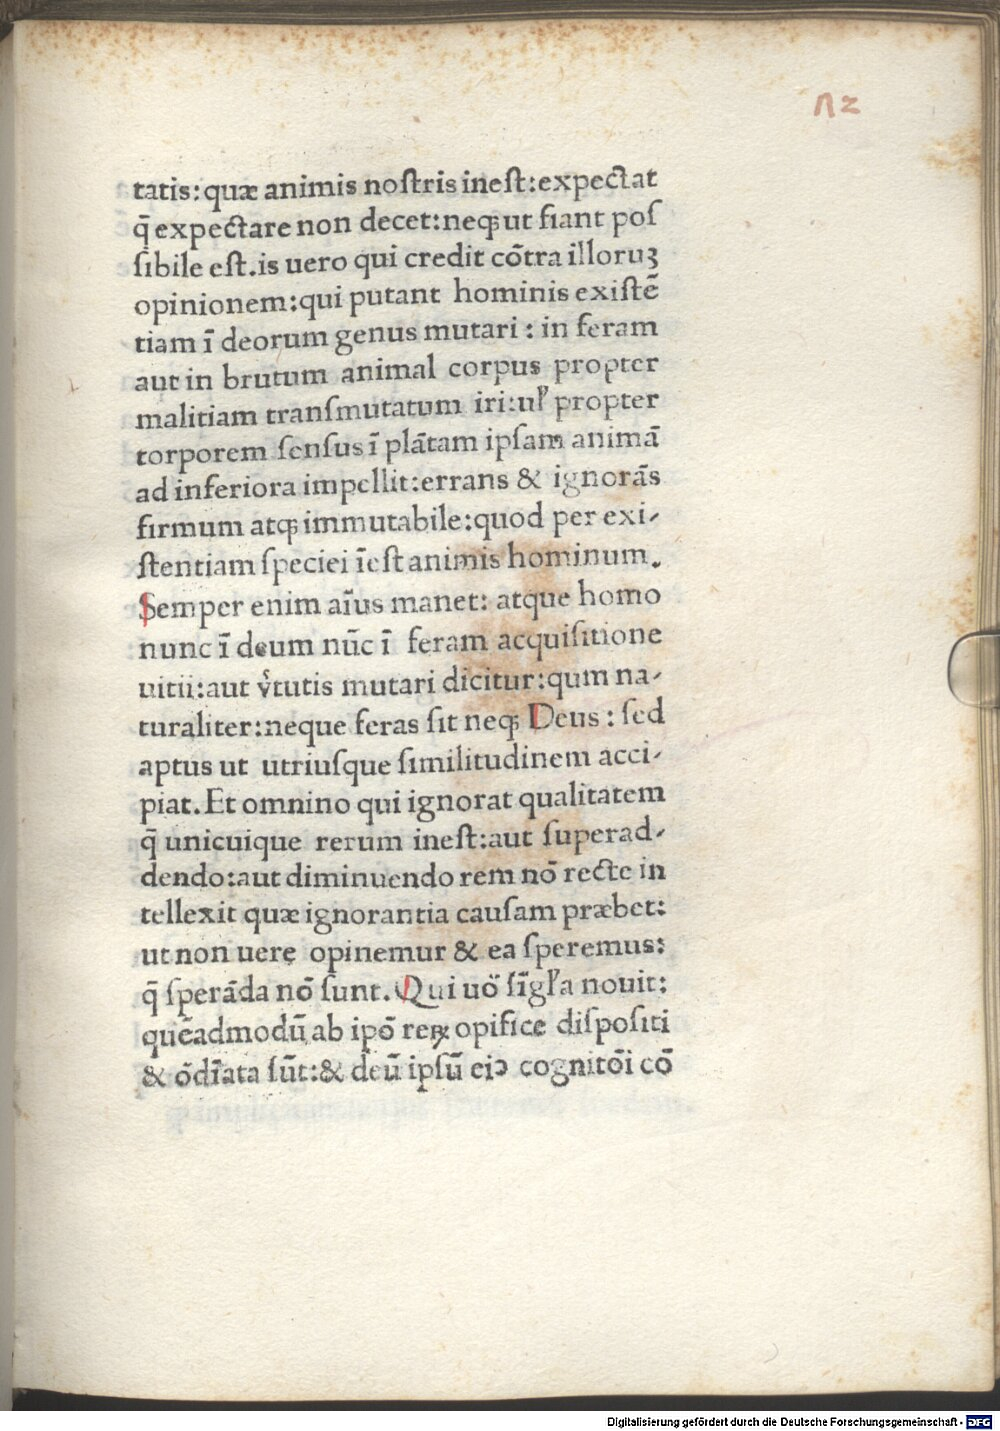 n2
tatis:quæ animis noſtris ineſt:expectat
q̄ expectare non decet:neqꝫ ut fiant poſ
ſibile eſt.is uero qui credit cōtra illoruꝫ
opinionem:qui putant hominis exiſtē
tiam ī deorum genus mutari: in feram
aut in brutum animal corpus propter
malitiam tranſmutatum iri:ul̓ propter
torporem ſenſus ī plātam ipſam animā
ad inferiora impellit:errans & ignorās
firmum atqꝫ immutabile:quod per exi-
ſtentiam ſpeciei īeſt animis hominum.
Semper enim aīus manet: atque homo
nunc ī deum nūc ī feram acquiſitione
uitii:aut v̓tutis mutari dicitur:qum na-
turaliter:neque feras ſit neqꝫ Deus: ſed
aptus ut utriuſque ſimilitudinem acci-
piat. Et omnino qui ignorat qualitatem
q̄ unicuique rerum ineſt:aut ſuperad-
dendo:aut diminuendo rem nō recte in
tellexit quæ ignorantia cauſam præbet:
ut non uere opinemur & ea ſperemus:
q̄ ſperāda nō ſunt. Qui uō ſīgl̓a nouit:
quēadmodū ab ipō reꝝ opifice diſpoſiti
& ōdīata ſūt:& deū ipſū eiꝯ cognitōi cō
Digitalisierung gefördert durch die Deutsche Forschungsgemeinschaft - DFG